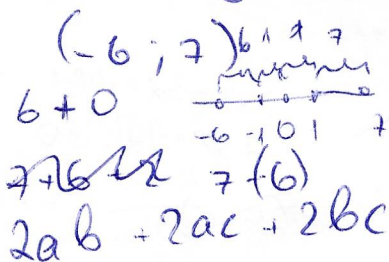 (-6 ; 7)
6 1 1 7
6 + 0
-6 -1 0 1 7
7 -(6)
2ab + 2ac + 2bc